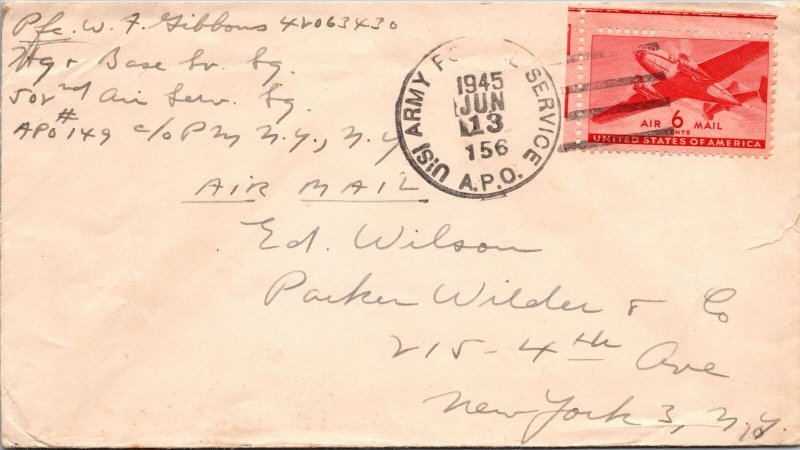 Pfc. W. F. Gibbons 42063430
Hq & Base Sv. Sq.
502nd Air Serv. Sq.
APO #149 c/o PM N.Y., N.Y.
AIR MAIL
U.S. ARMY SERVICE
1945
JUN
13
156
A.P.O.
AIR 6 MAIL
CENTS
UNITED STATES OF AMERICA
Ed. Wilson
Parker Wilder & Co
215-4th Ave
New York 3, N.Y.